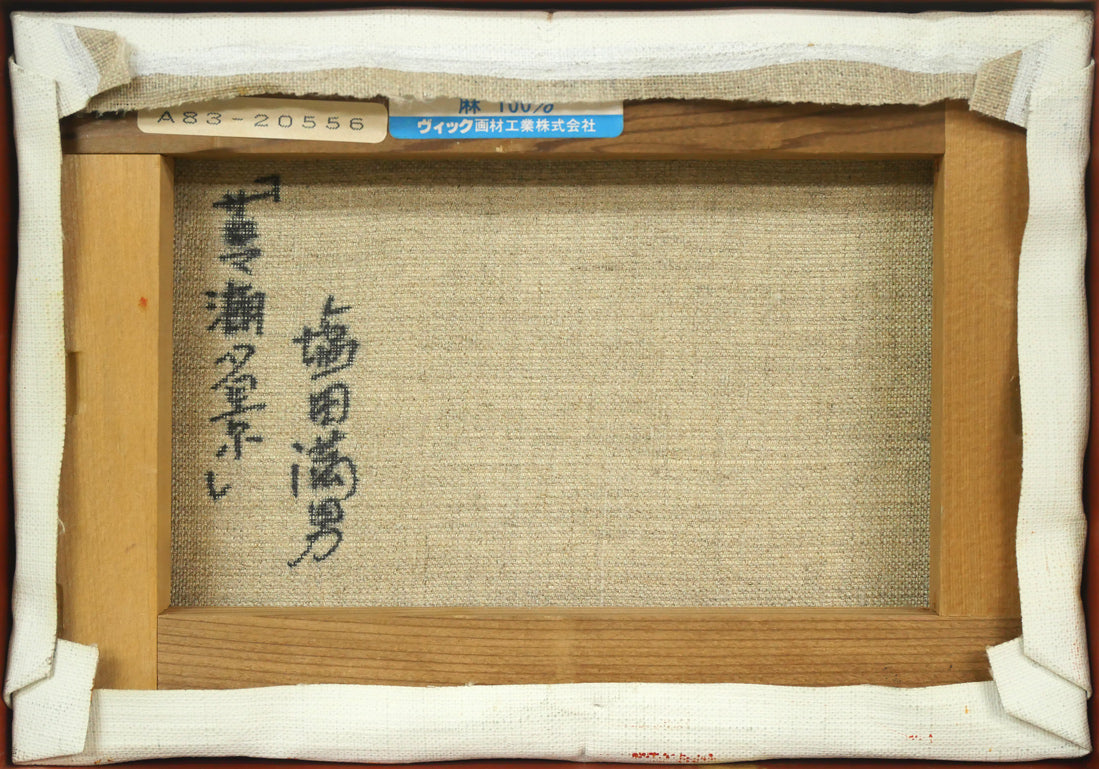 A83-20556
麻 100%
ヴィック画材工業株式会社
田満男
夕景」